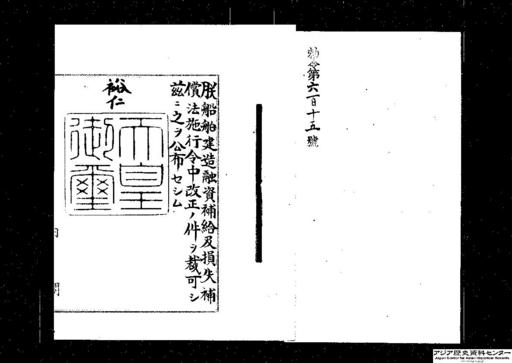 勅令第六百十五號
朕船舶建造融資補給及損失補
償法施行令中改正ノ件ヲ裁可シ
茲ニ之ヲ公布セシム
裕仁
天皇
御璽
内閣
アジア歴史資料センター
Japan Center for Asian Historical Records